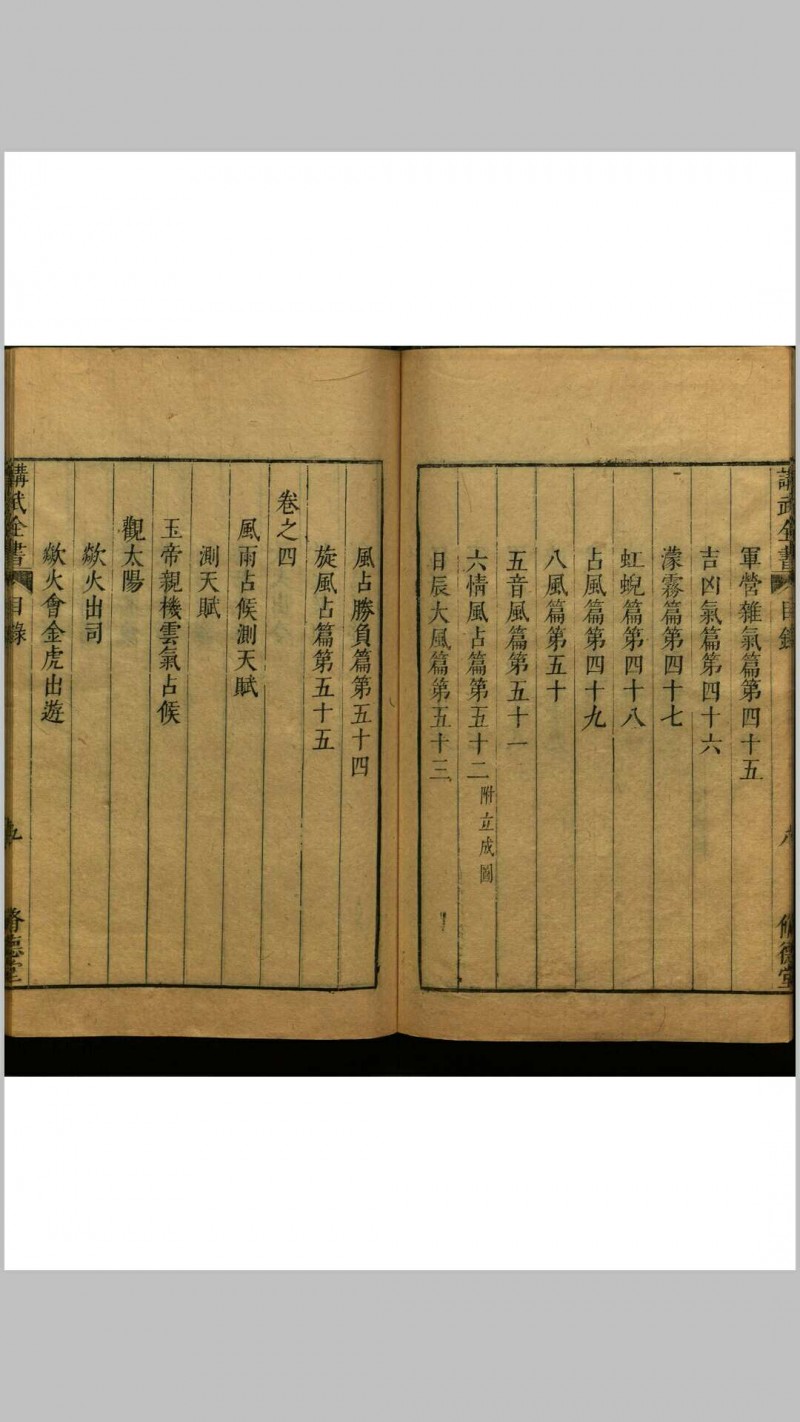 講武全書 目錄 八 脩德堂
軍營雜氣篇第四十五
吉凶氣篇第四十六
濛霧篇第四十七
虹蜺篇第四十八
占風篇第四十九
八風篇第五十
五音風篇第五十一
六情風占篇第五十二 附立成圖
日辰大風篇第五十三
風占勝負篇第五十四
旋風占篇第五十五
卷之四
風雨占候測天賦
測天賦
玉帝親機雲氣占候
觀太陽
歘火出司
歘火會金虎出遊
講武全書 目錄 九 脩德堂